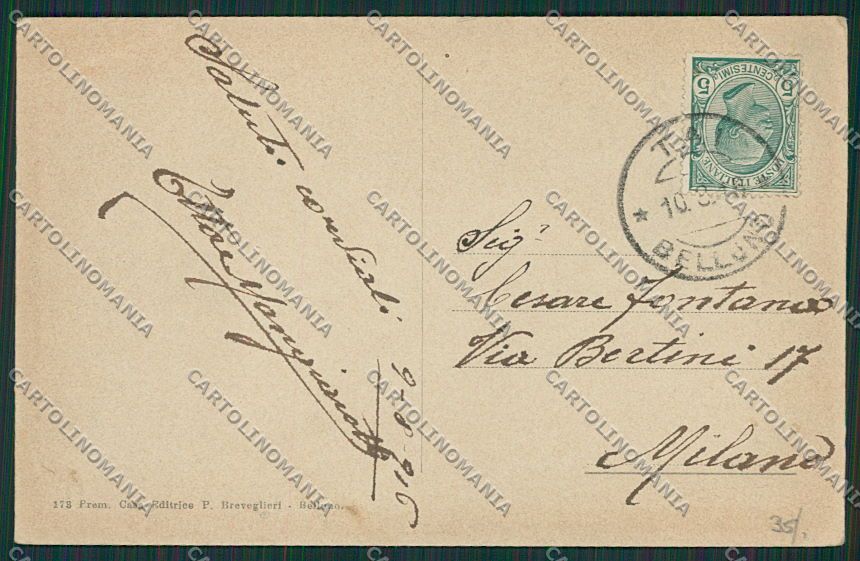 Saluti cordiali
Ettore
9-8-916
Sigr
Cesare Fontana
Via Bertini 17
Milano
POSTE ITALIANE
CENTESIMI
5 5
10. 8.
BELLUNO
173 Prem. Casa Editrice P. Breveglieri - Belluno.
35/.
CARTOLINOMANIA